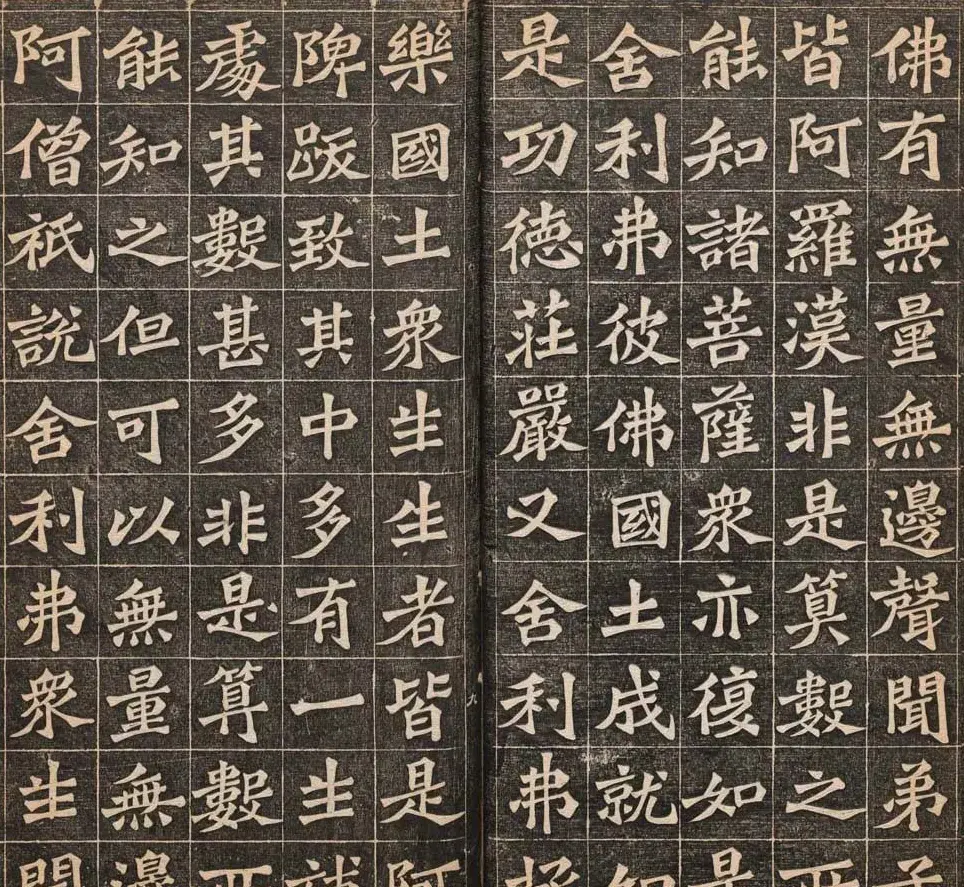 佛有無量無邊聲聞弟子
皆阿羅漢非是筭數之所
能知諸菩薩衆亦復如是
舍利弗彼佛國土成就如
是功徳莊嚴又舍利弗極
樂國土衆生生者皆是阿
陴跋致其中多有一生補
處其數甚多非是算數所
能知之但可以無量無邊
阿僧祇説舍利弗衆生聞